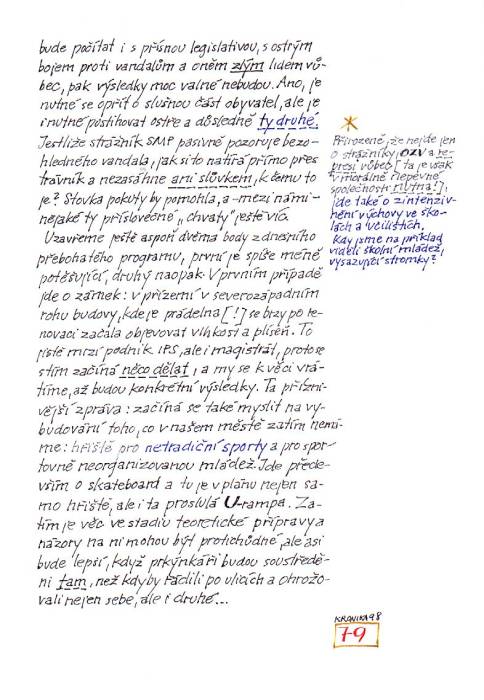 bude počítat i s přísnou legislativou, s ostrým
bojem proti vandalům a oněm zlým lidem vů-
bec, pak výsledky moc valné nebudou. Ano, je
nutné se opřít o slušnou část obyvatel, ale je
i nutné postihovat ostře a důsledně ty druhé.
Jestliže strážník SMP pasivně pozoruje bezo-
hledného vandala, jak si to natírá přímo přes
trávník a nezasáhne ani slůvkem, k čemu to
je? Stovka pokuty by pomohla, a – mezi námi –
nejaké ty příslovečné „chvaty" ještě víc.
Uzavřeme ještě aspoň dvěma body z dnešního
přebohatého programu, první je spíše méně
potěšující, druhý naopak. V prvním případě
jde o zámek: v přízemí v severozápadním
rohu budovy, kde je prádelna [!] se brzy po re-
novaci začala objevovat vlhkost a plíseň. To
jistě mrzí podnik IPS, ale i magistrát, proto se
s tím začíná něco dělat, a my se k věci vrá-
tíme, až budou konkrétní výsledky. Ta přízni-
vější zpráva: začíná se také myslit na vy-
budování toho, co v našem městě zatím nemá-
me: hřiště pro netradiční sporty a pro spor-
tovně neorganizovanou mládež. Jde přede-
vším o skateboard a tu je v plánu nejen sa-
mo hřiště, ale i ta proslulá U-rampa. Za-
tím je věc ve stadiu teoretické přípravy a
názory na ni mohou být protichůdné, ale asi
bude lepší, když prkýnkáři budou soustředě-
ni tam, než kdyby řádili po ulicích a ohrožo-
vali nejen sebe, ale i druhé...
Přirozeně, že nejde jen
o strážníky, OZV a re-
presi vůbec [ta je však
v morálně nepevné
společnosti nutná!],
jde také o zintenziv-
nění výchovy ve ško-
lách a učilištích.
Kdy jsme na příklad
viděli školní mládež,
vysazující stromky?
KRONIKA 98
79